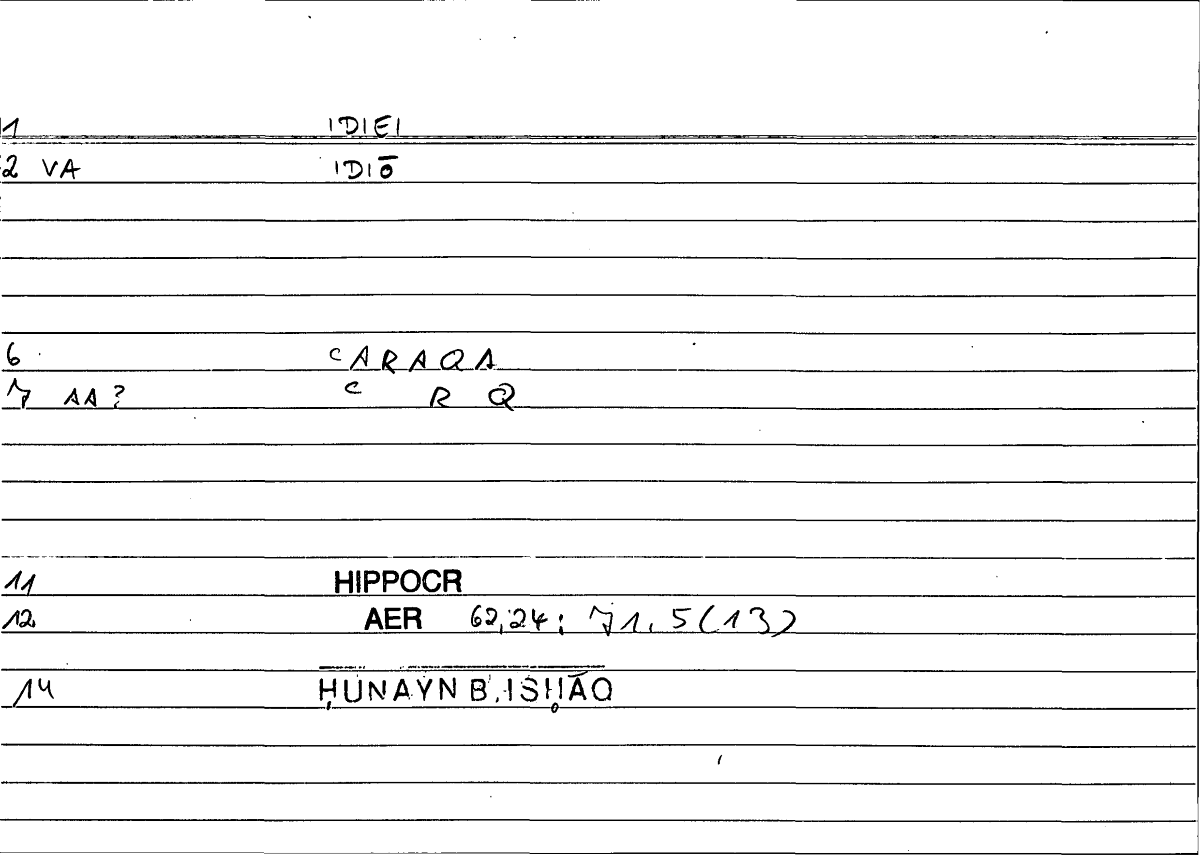 1 IDIEI
2 VA IDIŌ
6 ᶜARAQA
7 AA? ᶜ R Q
11 HIPPOCR
12 AER 62,24; 71,5(13)
14 ḤUNAYN B. ISḤĀQ